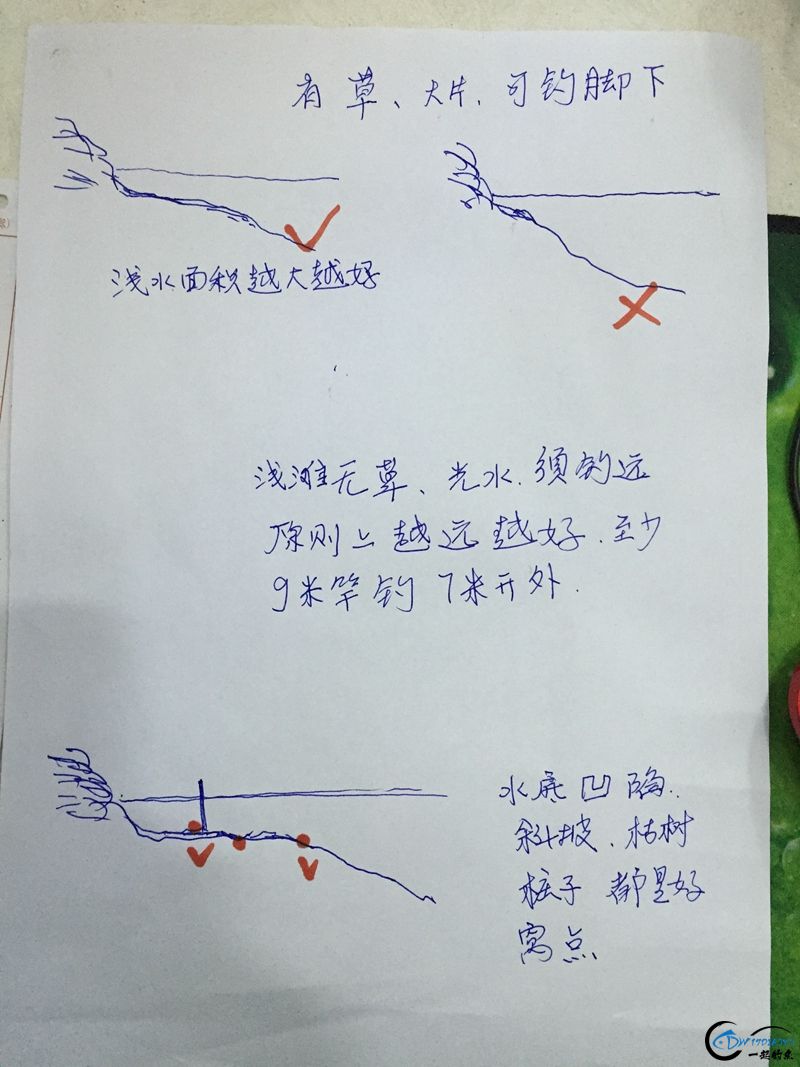 有草、大片、可钓脚下
浅水面积越大越好
浅滩无草、光水、须钓远
原则上越远越好、至少
9米竿钓7米开外.
水底凹陷、
斜坡、枯树
桩子 都是好
窝点
一起钓鱼